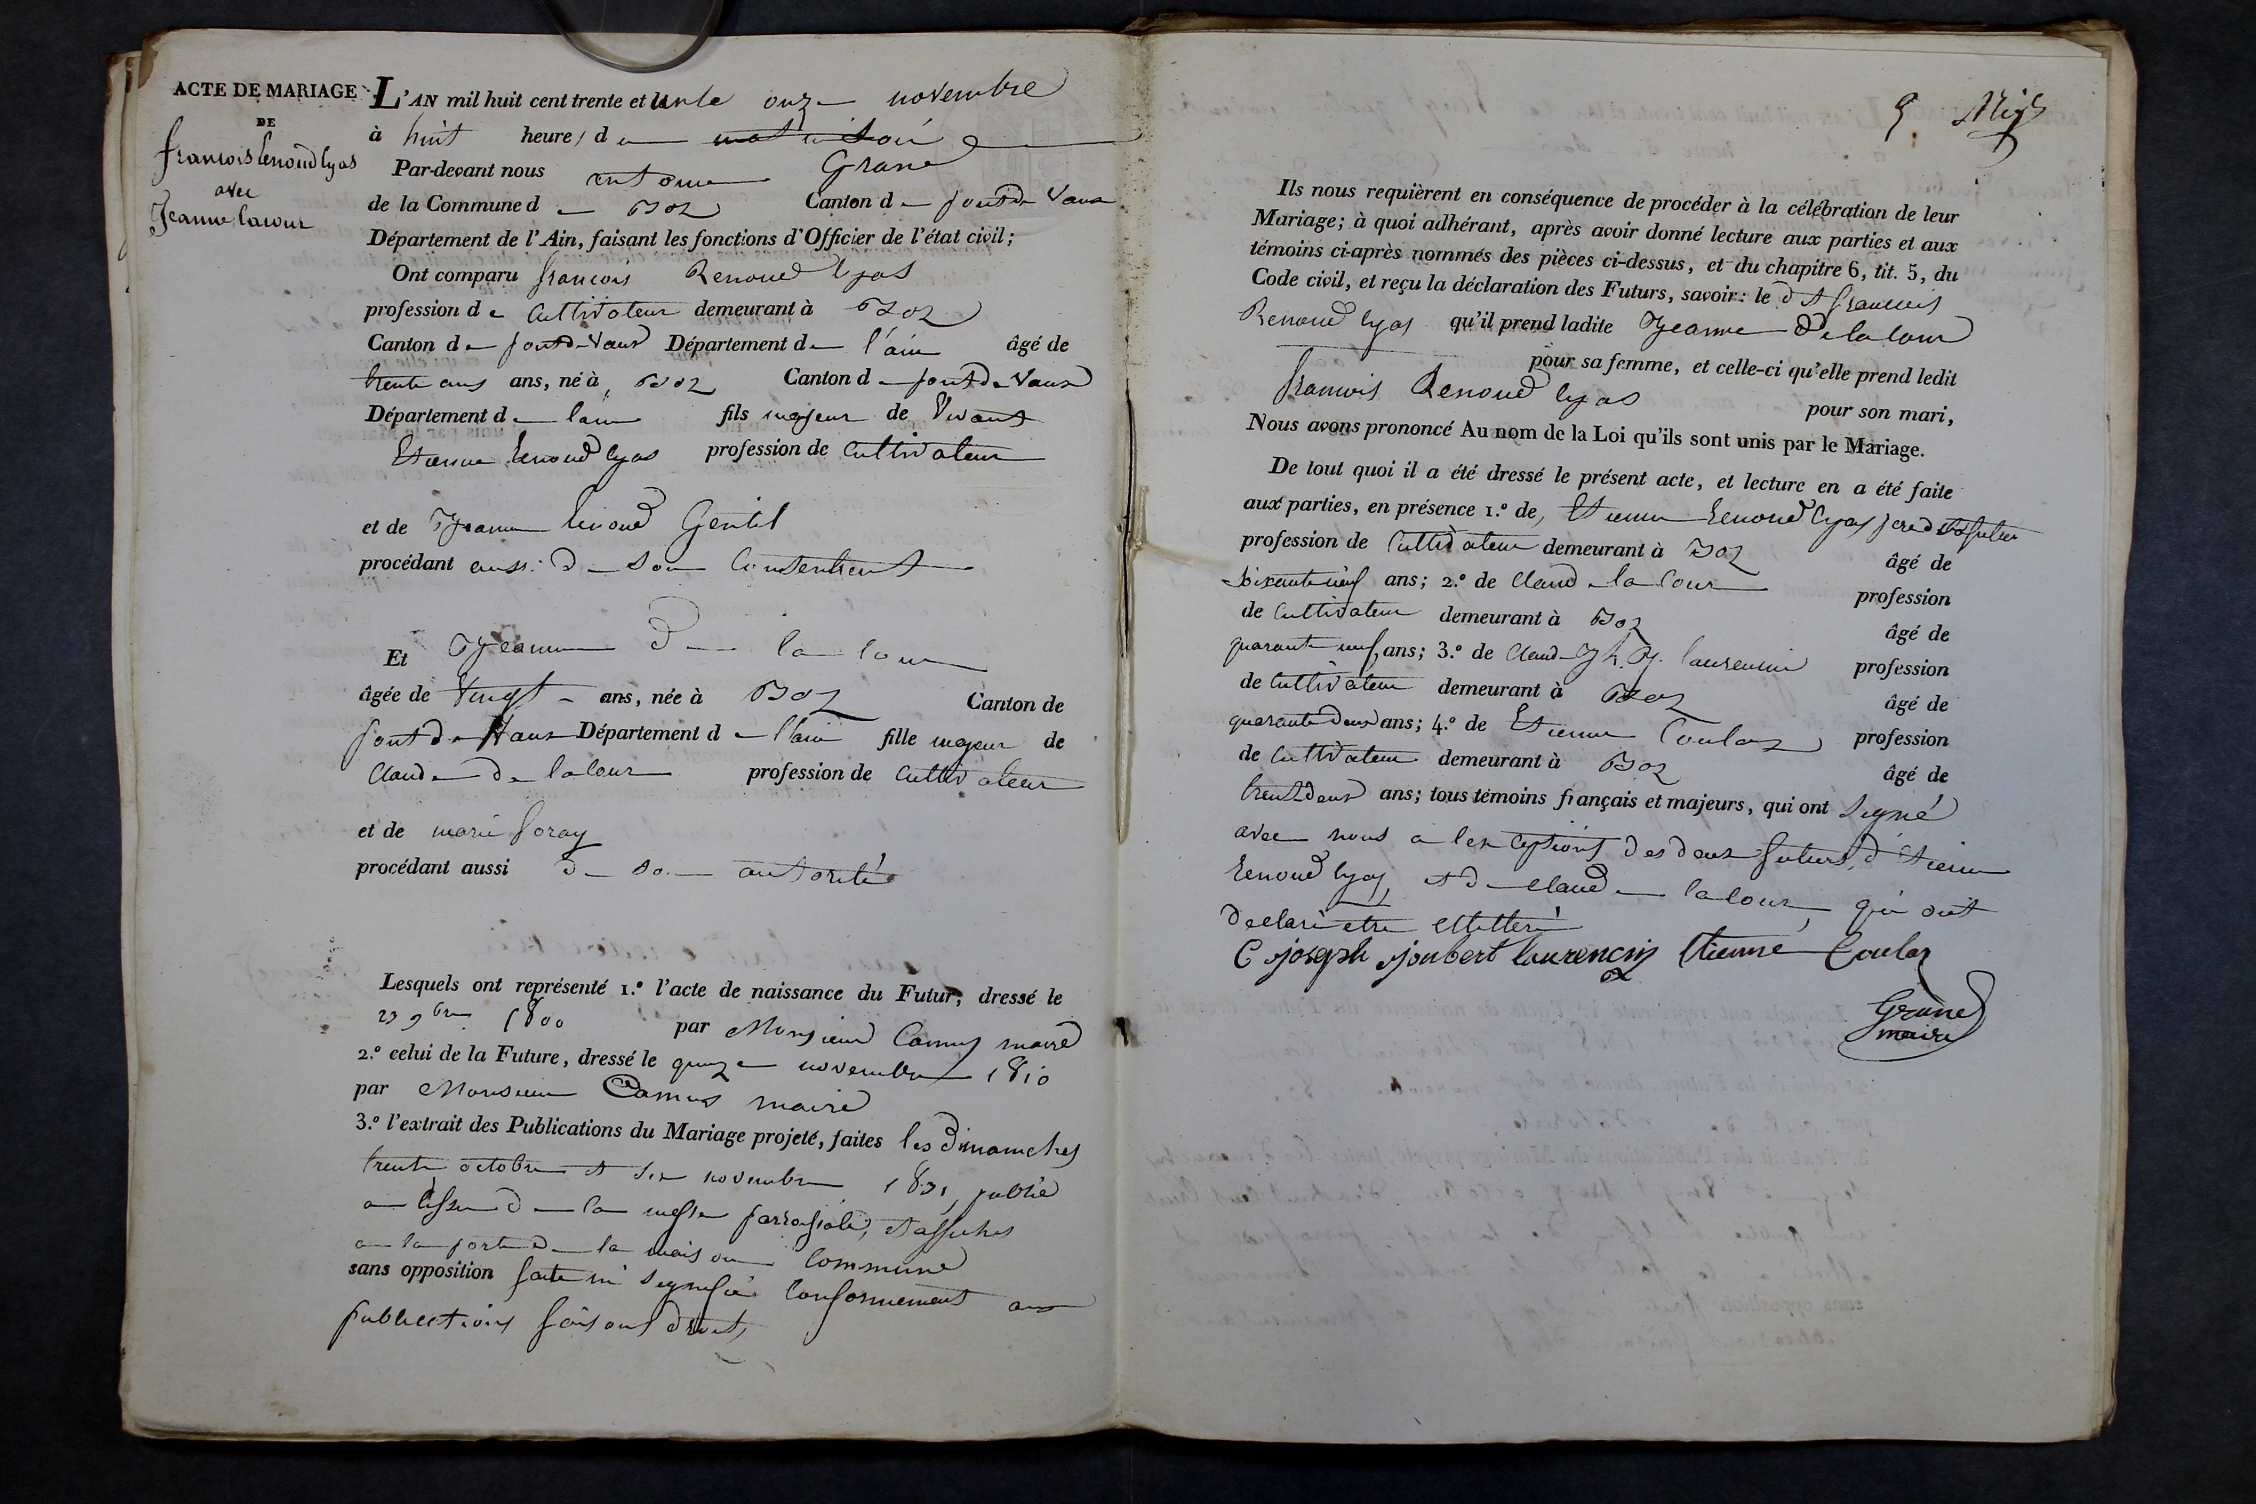 ACTE DE MARIAGE
DE
francois Renoud lyas
avec
Jeanne lacour
L'AN mil huit cent trente et un le onze novembre
à huit heures du matin Soir
Par-devant nous antoine Grand
de la Commune de Boz Canton de pontde Vaux
Département de l'Ain, faisant les fonctions d'Officier de l'état civil;
Ont comparu francois Renoud lyas
profession de Cultivateur demeurant à Boz
Canton de pontdeVaux Département de l'ain âgé de
trente ans ans, né à Boz Canton de pontdeVaux
Département de lain fils majeur de Vivant
Etienne Renoud lyas profession de Cultivateur
et de Jeanne Renoud Gentil
procédant aussi de Son Consentement
Et Jeanne De la Cour
âgée de Vingt ans, née à Boz Canton de
pont de Vaux Département de l'ain fille majeur de
Claude De lalour profession de Cultivateur
et de marie foray
procédant aussi de so autorité
Lesquels ont représenté 1.º l'acte de naissance du Futur, dressé le
23 9bre 1800 par Monsieur Camus maire
2.º celui de la Future, dressé le quinze novembre 1810
par Monsieur Camus maire
3.º l'extrait des Publications du Mariage projeté, faites les Dimanches
trente octobre et six novembre 1831, publié
a lissue de la messe parrossiale, et affiches
a la porte de la maison Commune
sans opposition faite ni signifiée Conformement aux
publications faisant droit,
9 Mixte
Ils nous requièrent en conséquence de procéder à la célébration de leur
Mariage; à quoi adhérant, après avoir donné lecture aux parties et aux
témoins ci-après nommés des pièces ci-dessus, et du chapitre 6, tit. 5, du
Code civil, et reçu la déclaration des Futurs, savoir: le dt francois
Renoud lyas qu'il prend ladite Jeanne De la Cour
pour sa femme, et celle-ci qu'elle prend ledit
francois Renoud lyas pour son mari,
Nous avons prononcé Au nom de la Loi qu'ils sont unis par le Mariage.
De tout quoi il a été dressé le présent acte, et lecture en a été faite
aux parties, en présence 1.º de, Etienne Renoud lyas pere du futur
profession de Cultivateur demeurant à Boz âgé de
Soixante neuf ans; 2.º de Claude la Cour profession
de Cultivateur demeurant à Boz âgé de
quarante neuf ans; 3.º de Claude Jh. J. laurencin profession
de Cultivateur demeurant à Boz âgé de
quarante deux ans; 4.º de Etienne Coulas profession
de Cultivateur demeurant à Boz âgé de
trente deux ans; tous témoins français et majeurs, qui ont Signé
avec nous a lex ceptions des deux futurs, d'Etienne
Renoud lyas, et de Claude lalour, qui ont
declaré etre illettéré
C joseph joubert laurencin Etienne Coulas
Grand
maire